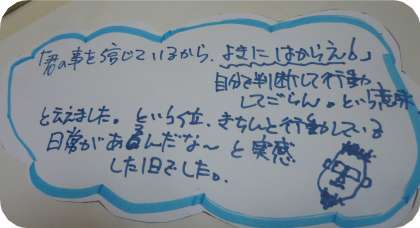 「君の事を信じているから、よきにはからえ。」
自分で判断して行動
してごらん。という意味
とえました。という位、きちんと行動している
日常があるんだな～と実感
した1日でした。